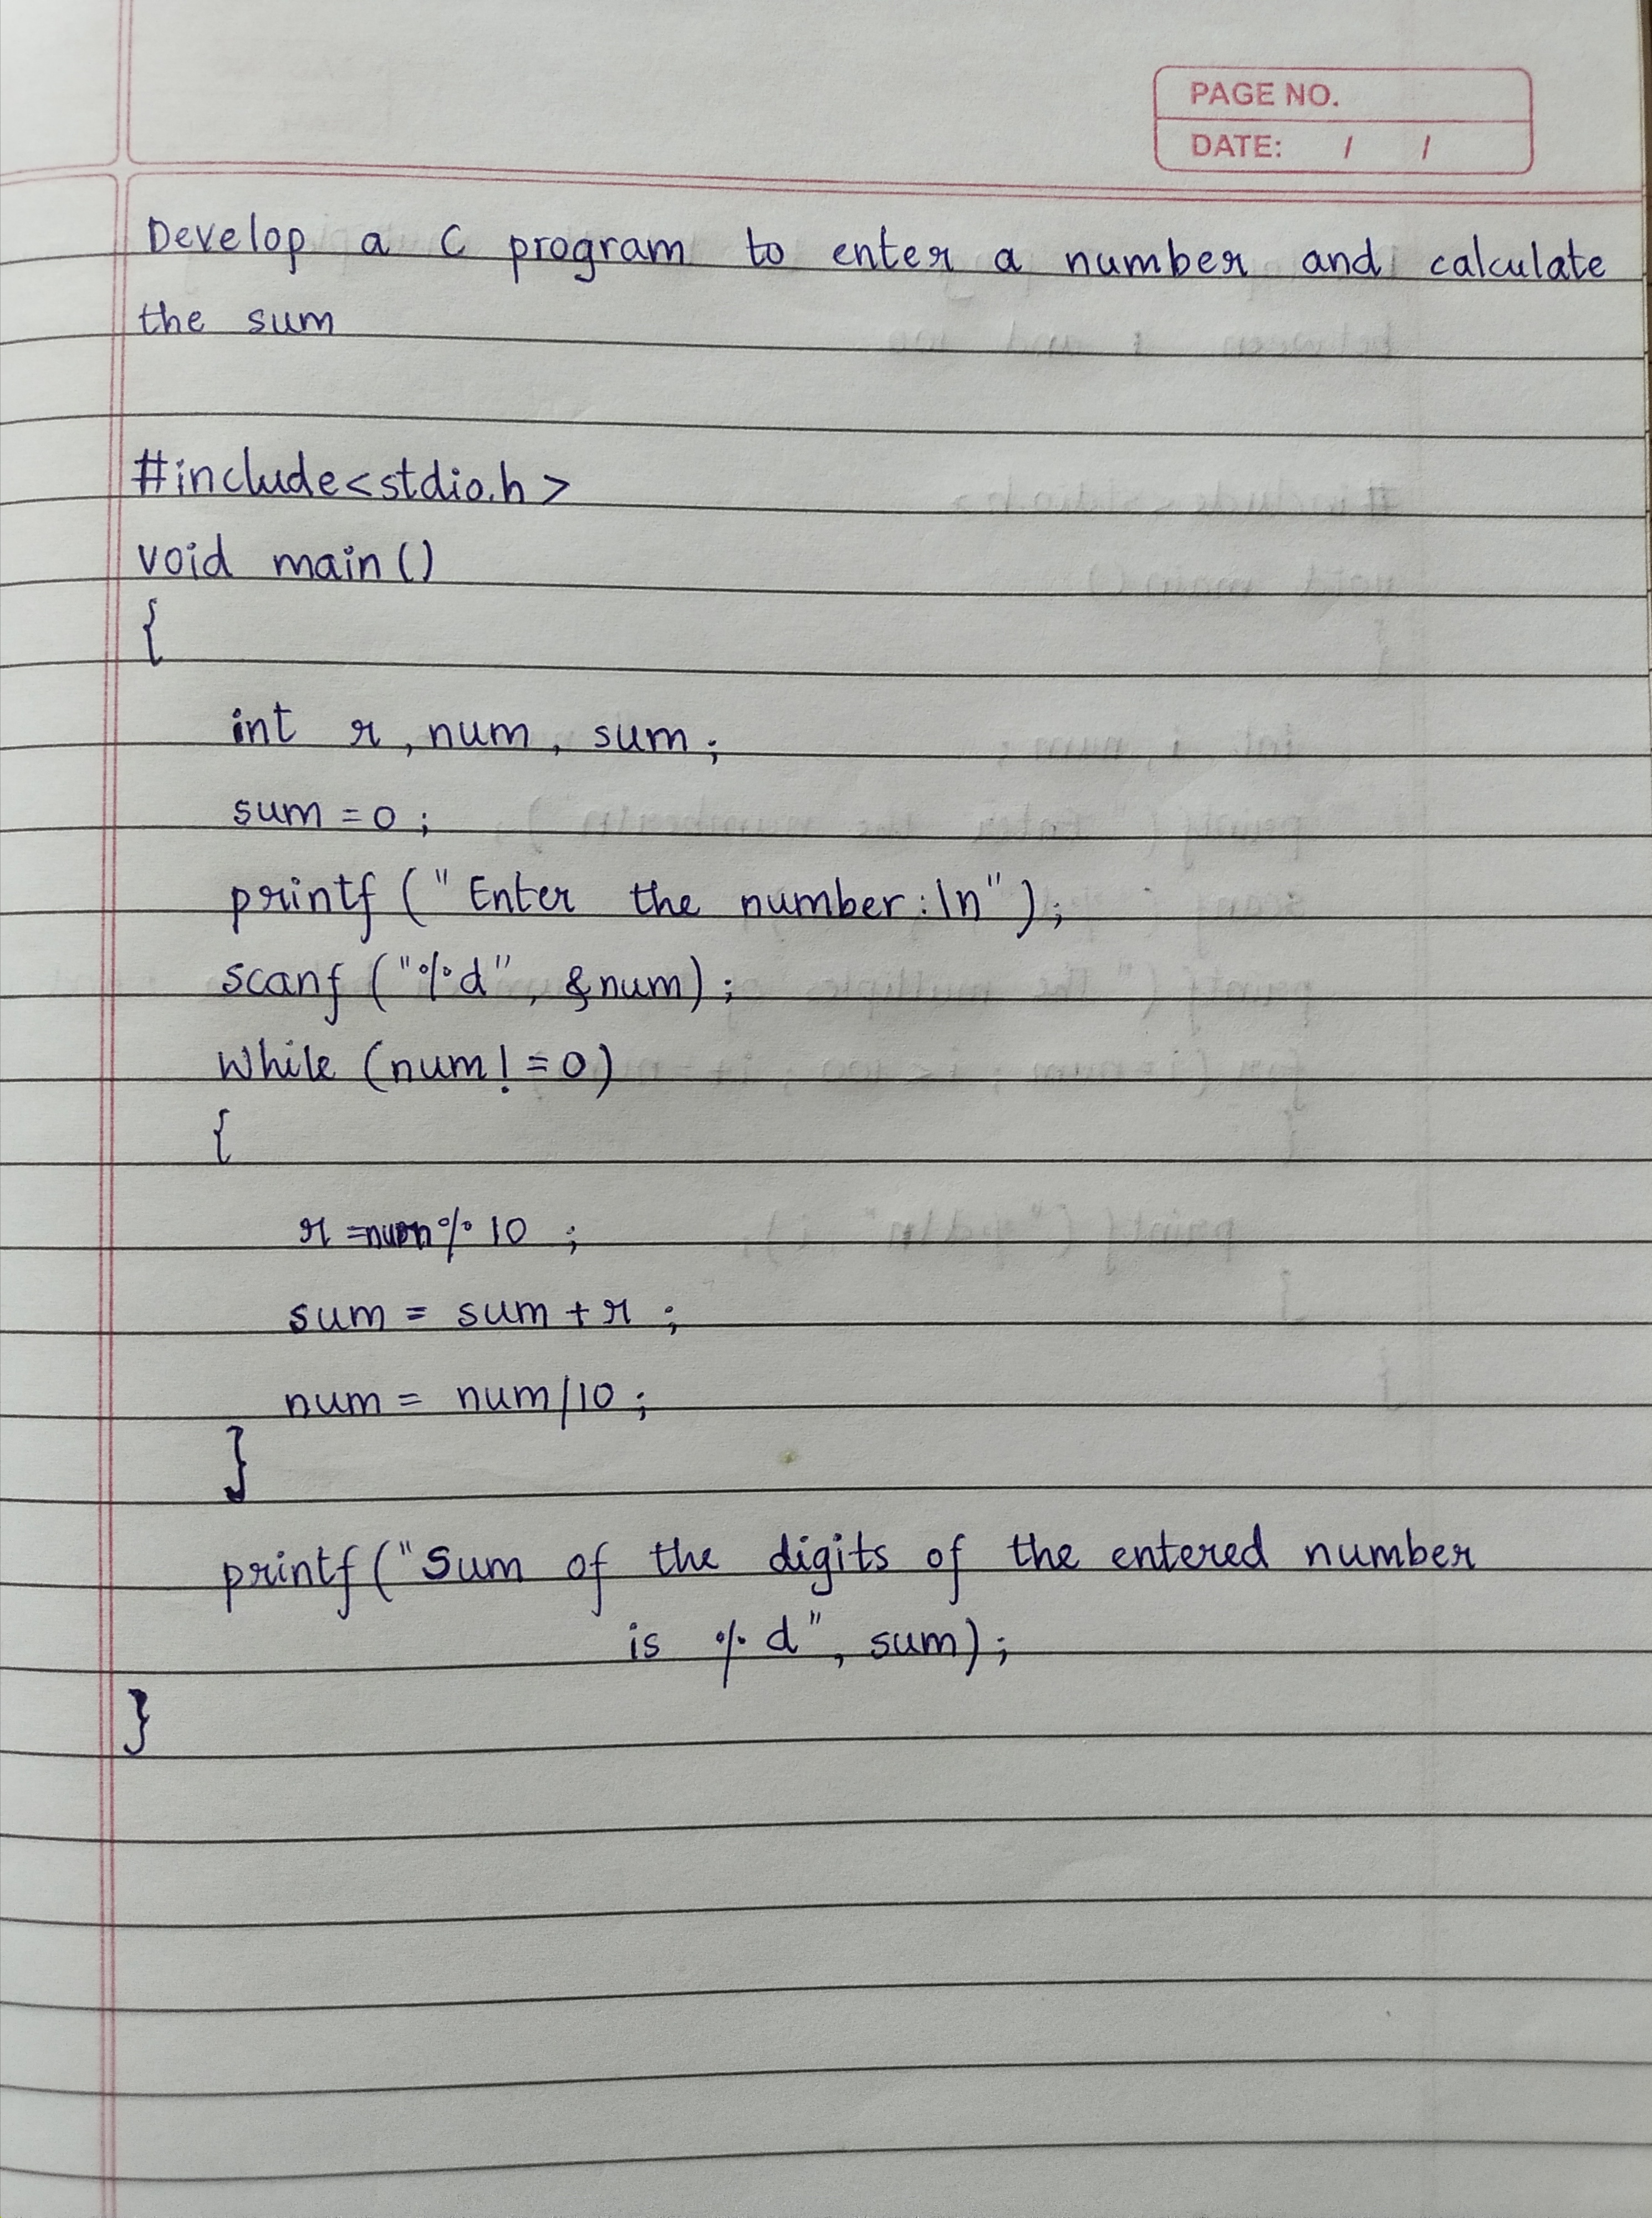 PAGE NO.
DATE: / /
Develop a C program to enter a number and calculate
the sum
#include<stdio.h>
void main()
{
int r, num, sum;
sum = 0;
printf ("Enter the number:\n");
scanf ("%d", &num);
While (num! = 0)
{
r = num % 10 ;
sum = sum + r ;
num = num/10 ;
}
printf ("Sum of the digits of the entered number
is %d", sum);
}